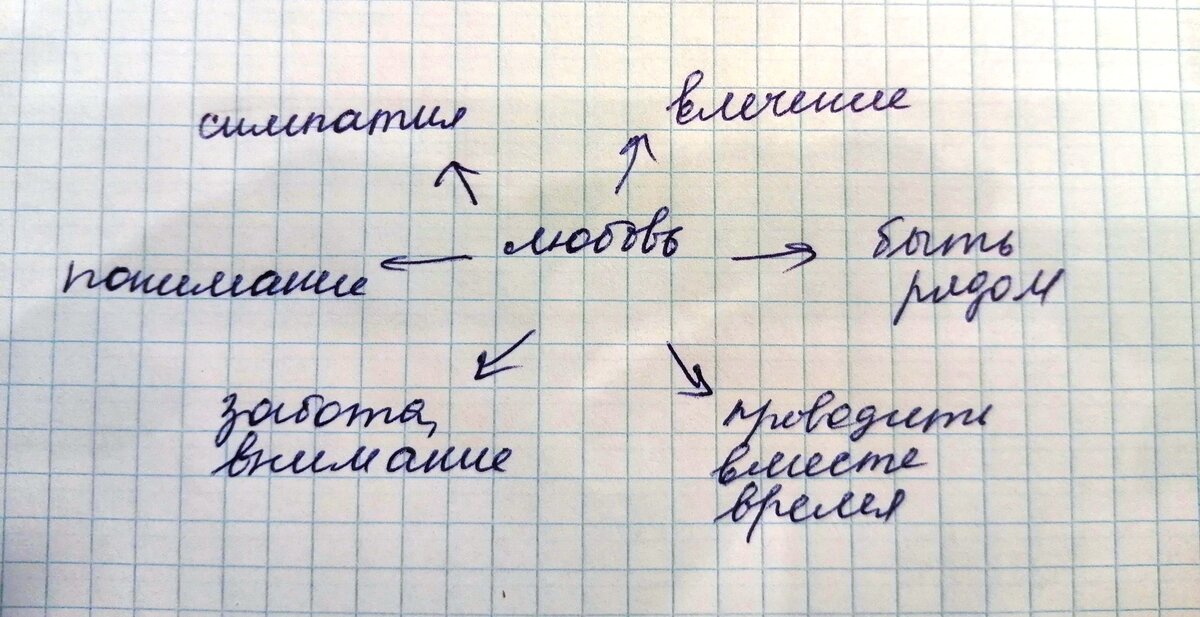 симпатия
влечение
любовь
понимание
быть
рядом
забота,
внимание
проводить
вместе
время